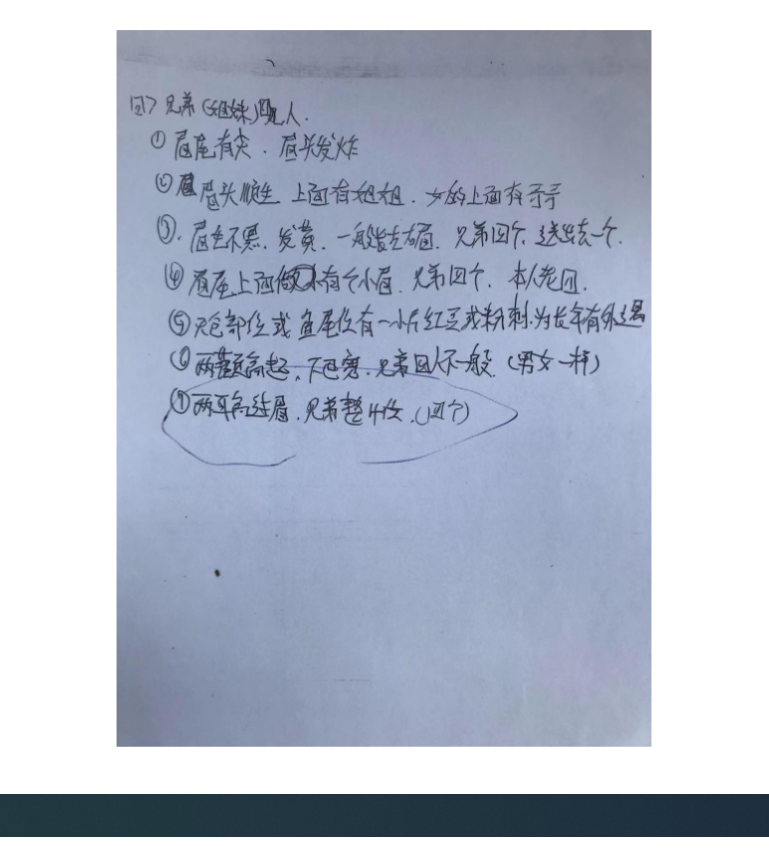 四> 兄弟(姐妹)四人.
① 眉尾有尖. 眉头发炸
② 眉头顺生 上面有姐姐. 女的上面有哥哥
③. 眉毛不黑. 发黄. 一般生左右眉. 兄弟四个. 送出去一个.
④ 眉尾上面有个小眉. 兄弟四个. 本人老四.
⑤ 天仓部位或鱼尾位有一小片红豆或粉刺.为长年有外遇
⑥ 两颧高起、下巴宽. 兄弟四人不一般 (男女一样)
⑦ 两耳高过眉. 兄弟整. (四个)